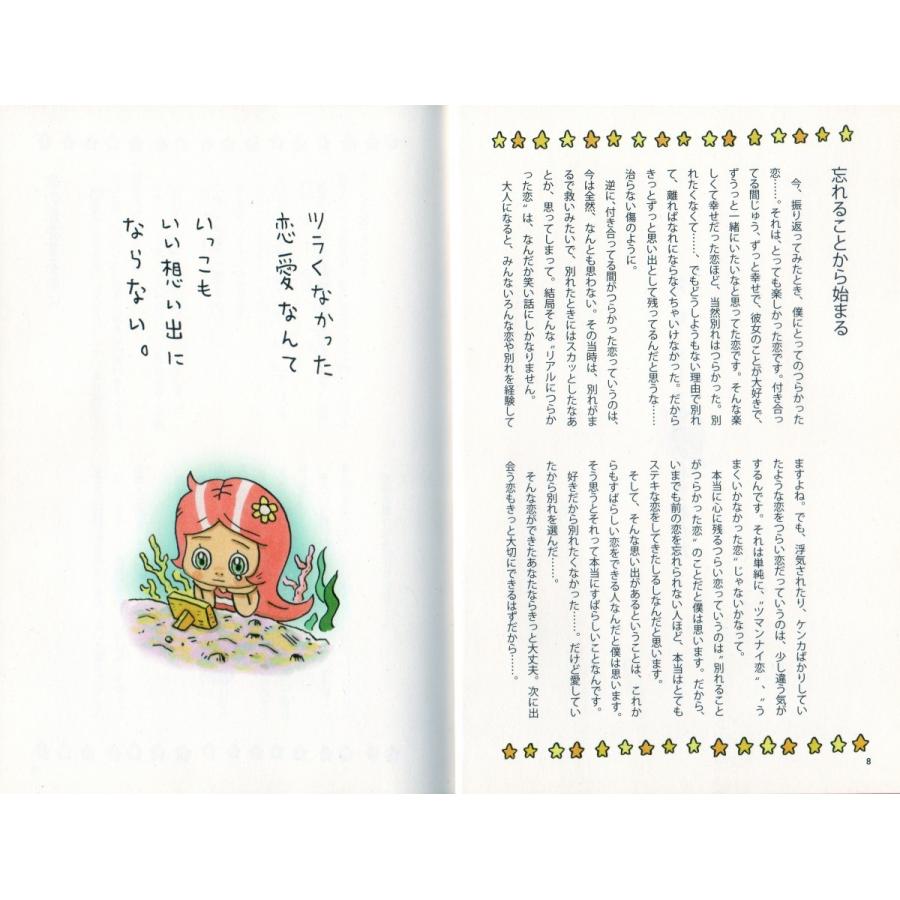 忘れることから始まる
今、振り返ってみたとき、僕にとってのつらかった
恋……。それは、とっても楽しかった恋です。付き合っ
てる間じゅう、ずっと幸せで、彼女のことが大好きで、
ずうっと一緒にいたいなと思ってた恋です。そんな楽
しくて幸せだった恋ほど、当然別れはつらかった。別
れたくなくて……、でもどうしようもない理由で別れ
て、離ればなれにならなくちゃいけなかった。だから
きっとずっと思い出として残ってるんだと思うな……
治らない傷のように。
逆に、付き合ってる間がつらかった恋っていうのは、
今は全然、なんとも思わない。その当時は、別れがま
るで救いみたいで、別れたときにはスカッとしたなあ
とか、思ってしまって。結局そんな〝リアルにつらか
った恋〟は、なんだか笑い話にしかなりません。
大人になると、みんないろんな恋や別れを経験して
ますよね。でも、浮気されたり、ケンカばかりしてい
たような恋をつらい恋だっていうのは、少し違う気が
するんです。それは単純に、〝ツマンナイ恋〟、〝う
まくいかなかった恋〟じゃないかなって。
本当に心に残るつらい恋っていうのは〝別れること
がつらかった恋〟のことだと僕は思います。だから、
いまでも前の恋を忘れられない人ほど、本当はとても
ステキな恋をしてきたしるしなんだと思います。
そして、そんな思い出があるということは、これか
らもすばらしい恋をできる人なんだと僕は思います。
そう思うとそれって本当にすばらしいことなんです。
好きだから別れたくなかった……。だけど愛してい
たから別れを選んだ……。
そんな恋ができたあなたならきっと大丈夫。次に出
会う恋もきっと大切にできるはずだから……。
8
ツラくなかった
恋愛なんて
いっこも
いい想い出に
ならない。